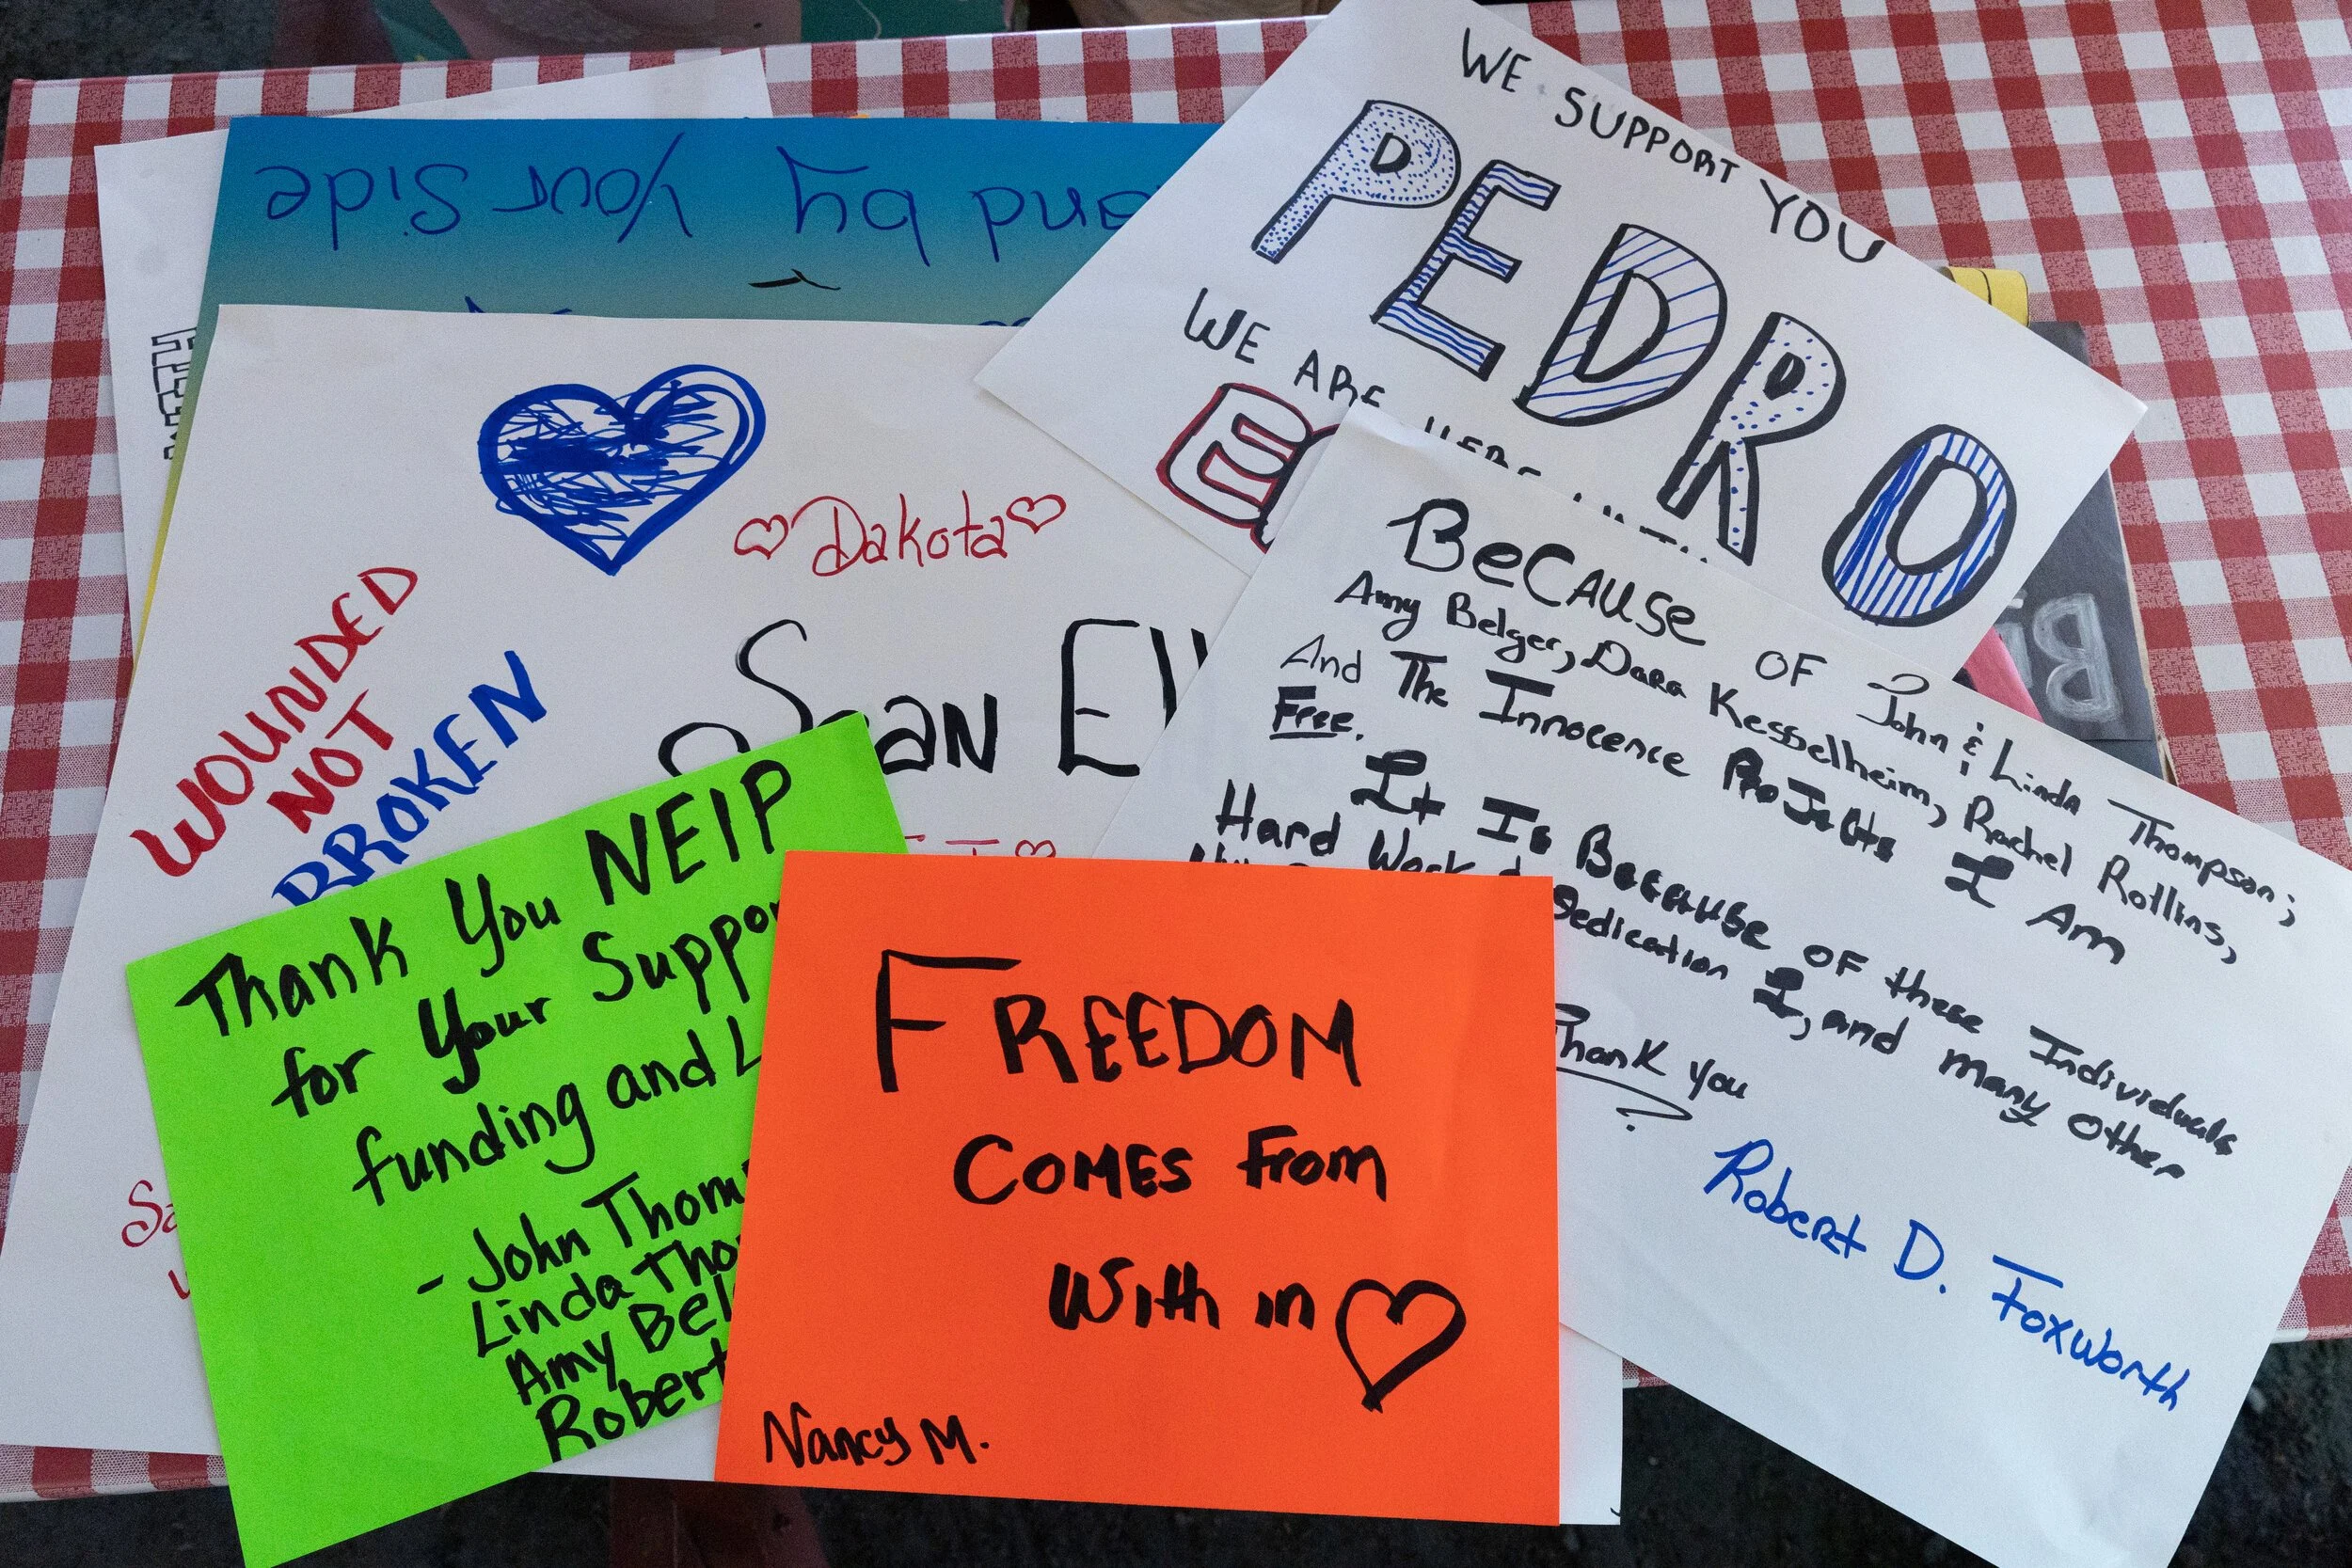 and by Your Side
WE SUPPORT YOU
PEDRO
WE ARE HERE
Dakota
WOUNDED
NOT
BROKEN
Sean
BeCAUSe OF John & Linda Thompson;
Amy Belger, Dara Kesselheim, Rachel Rollins,
And The Innocence ProJects I Am
Free.
It Is Because OF these Individuals
Hard Work & Dedication I, and many other
Thank you
Robert D. Foxworth
Thank You NEIP
for Your Suppor
funding and L
- John Thom
Linda Tho
Amy Bel
Robert
FREEDOM
COMES From
With in
Nancy M.